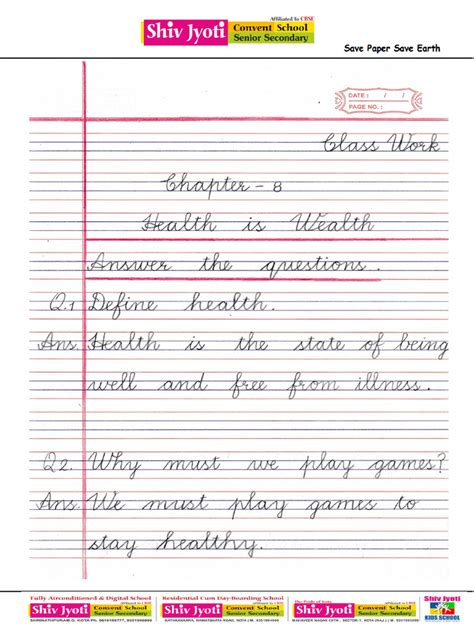 Affiliated to CBSE
Shiv Jyoti Convent School Senior Secondary
Save Paper Save Earth
DATE : / /
PAGE NO. :
Class Work
Chapter - 8
Health is Wealth
Answer the questions.
Q.1 Define health.
Ans. Health is the state of being
well and free from illness.
Q2. Why must we play games?
Ans. We must play games to
stay healthy.
Fully Airconditioned & Digital School
Residential Cum Day-Boarding School
Shiv Jyoti Convent School Senior Secondary
Shiv Jyoti Convent School Senior Secondary
Shiv Jyoti Convent School Senior Secondary
Shiv Jyoti
KIDS SCHOOL